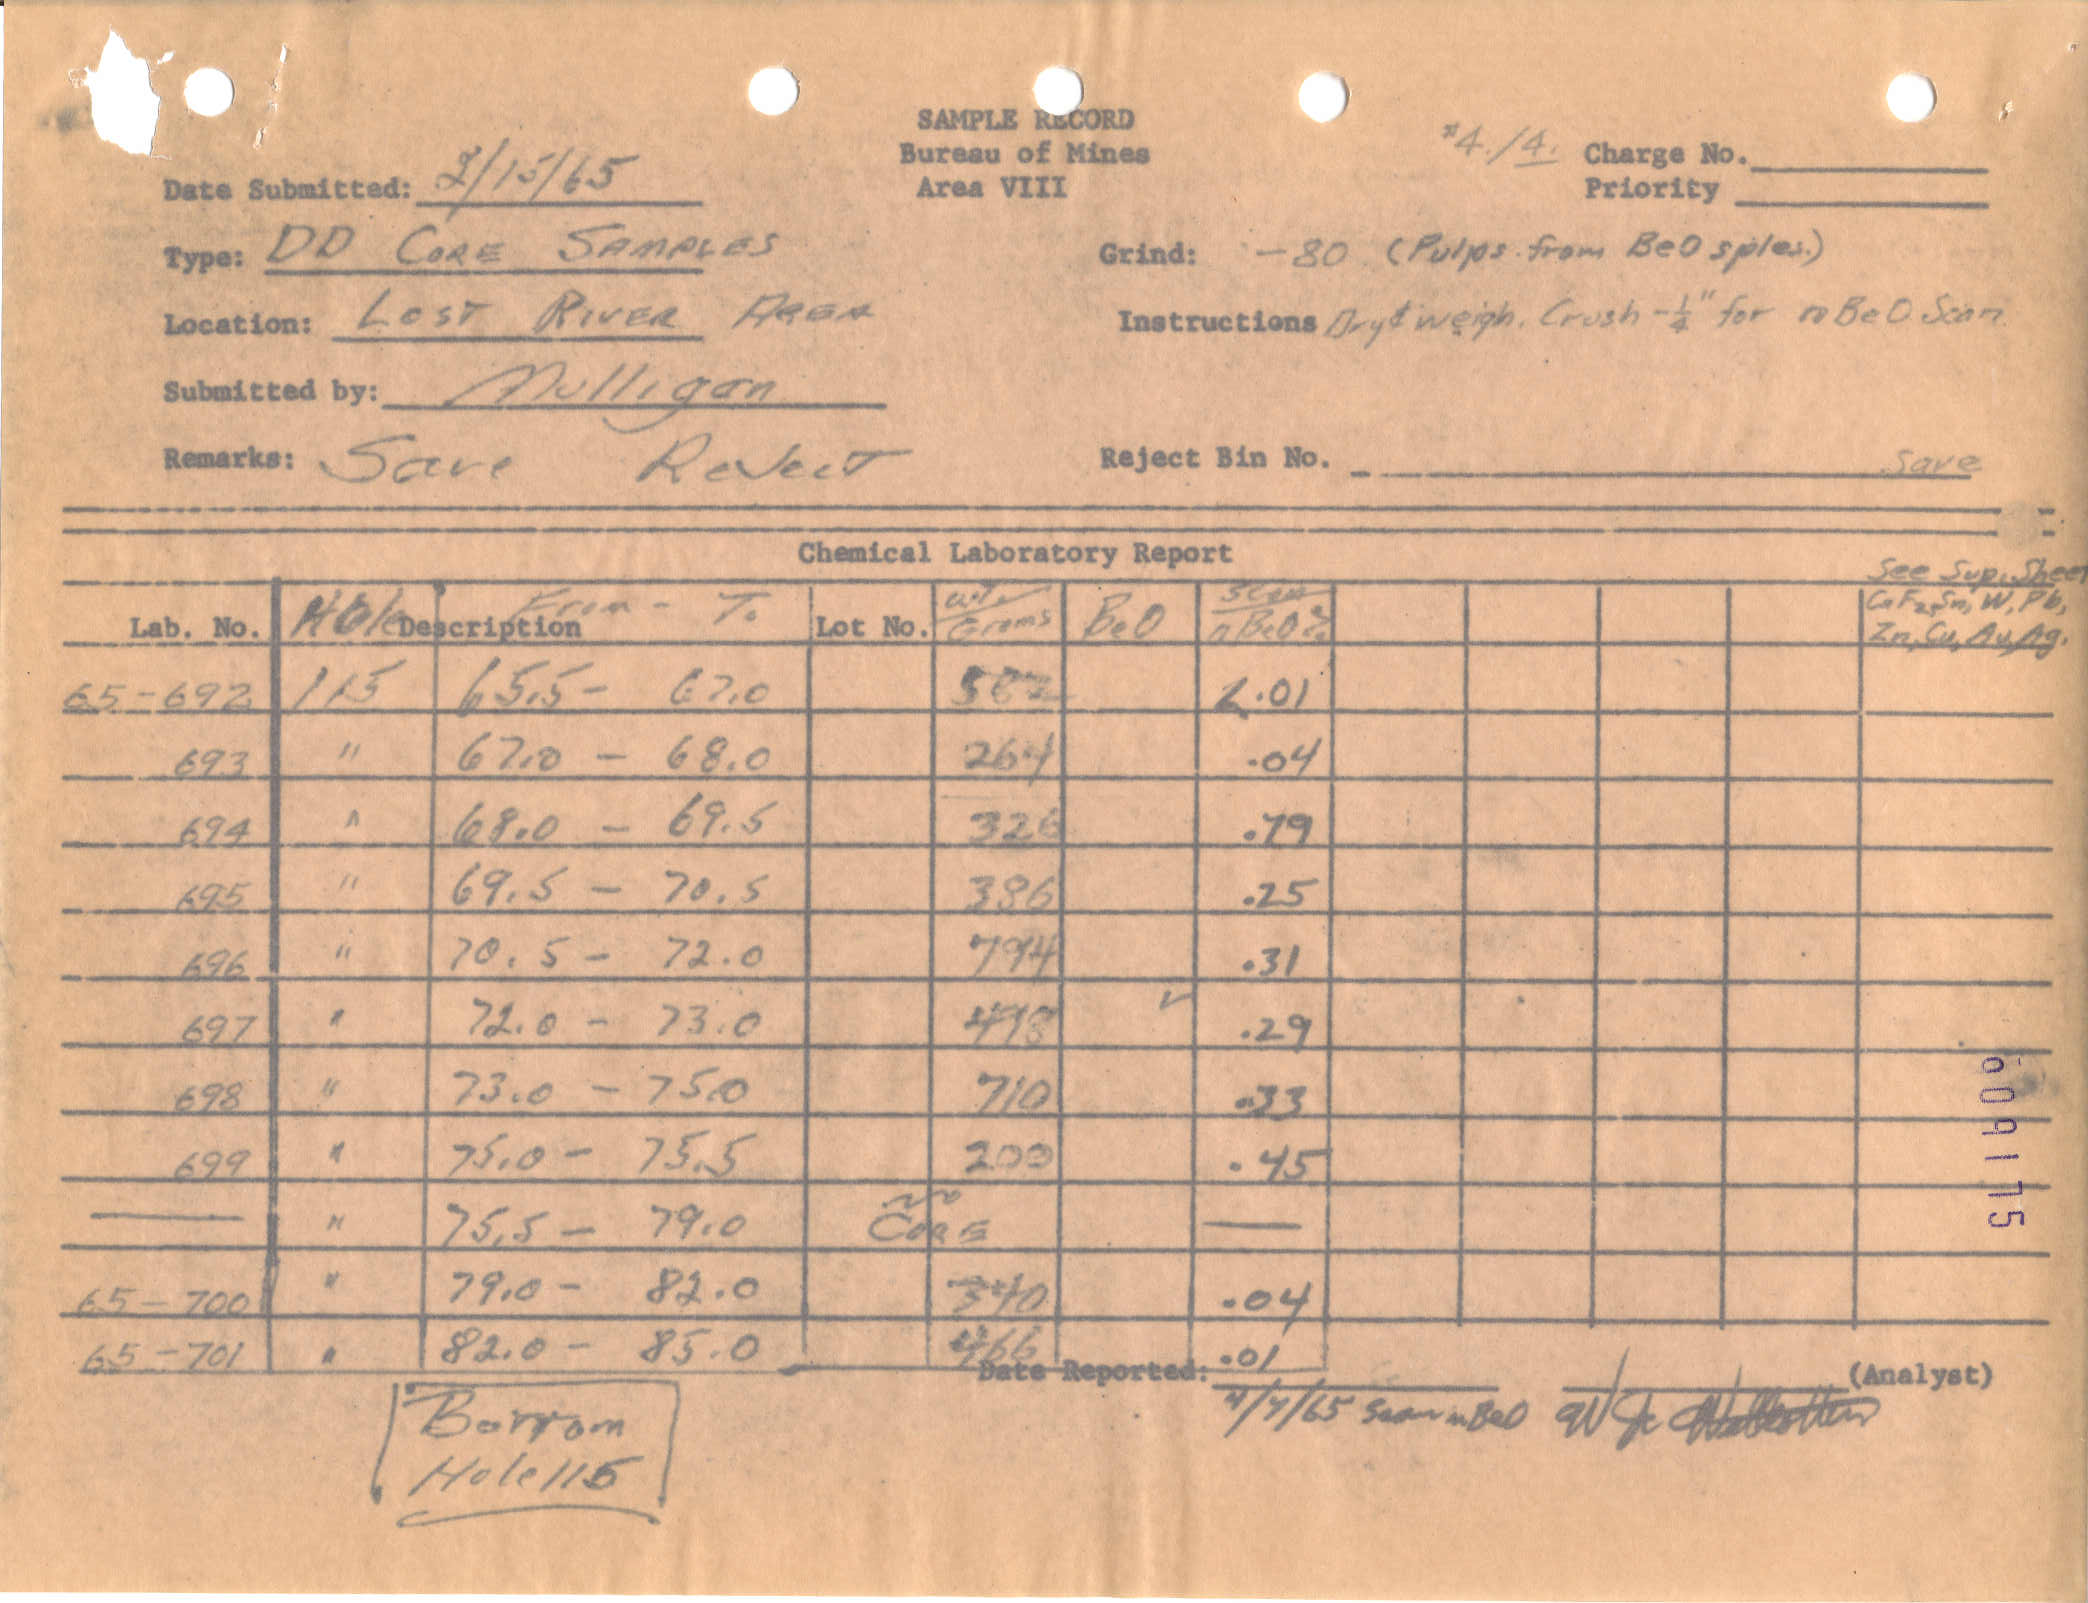 SAMPLE RECORD
Bureau of Mines
Area VIII
#4./4. Charge No.
Priority
Date Submitted: 2/15/65
Type: DD CORE SAMPLES
Grind: -80 (Pulps from BeO sples.)
Location: LOST RIVER AREA
Instructions Dry & weigh. Crush -1/4" for nBeO Scan.
Submitted by: Mulligan
Remarks: Save Reject
Reject Bin No. Save
Chemical Laboratory Report
See Sup. Sheet
Lab. No. Hole Description From - To Lot No. wt. Grams BeO scan nBeO % CaF2, Sn, W, Pb, Zn, Cu, Au, Ag.
65-692 115 65.5 - 67.0 562 <.01
693 " 67.0 - 68.0 264 .04
694 " 68.0 - 69.5 326 .79
695 " 69.5 - 70.5 386 .25
696 " 70.5 - 72.0 794 .31
697 " 72.0 - 73.0 498 ✓ .29
698 " 73.0 - 75.0 710 .33
699 " 75.0 - 75.5 200 .45
— " 75.5 - 79.0 no CORE —
65-700 " 79.0 - 82.0 340 .04
65-701 " 82.0 - 85.0 466 .01
Date Reported: 4/7/65 Scan nBeO (Analyst)
Bottom
Hole 115
609175